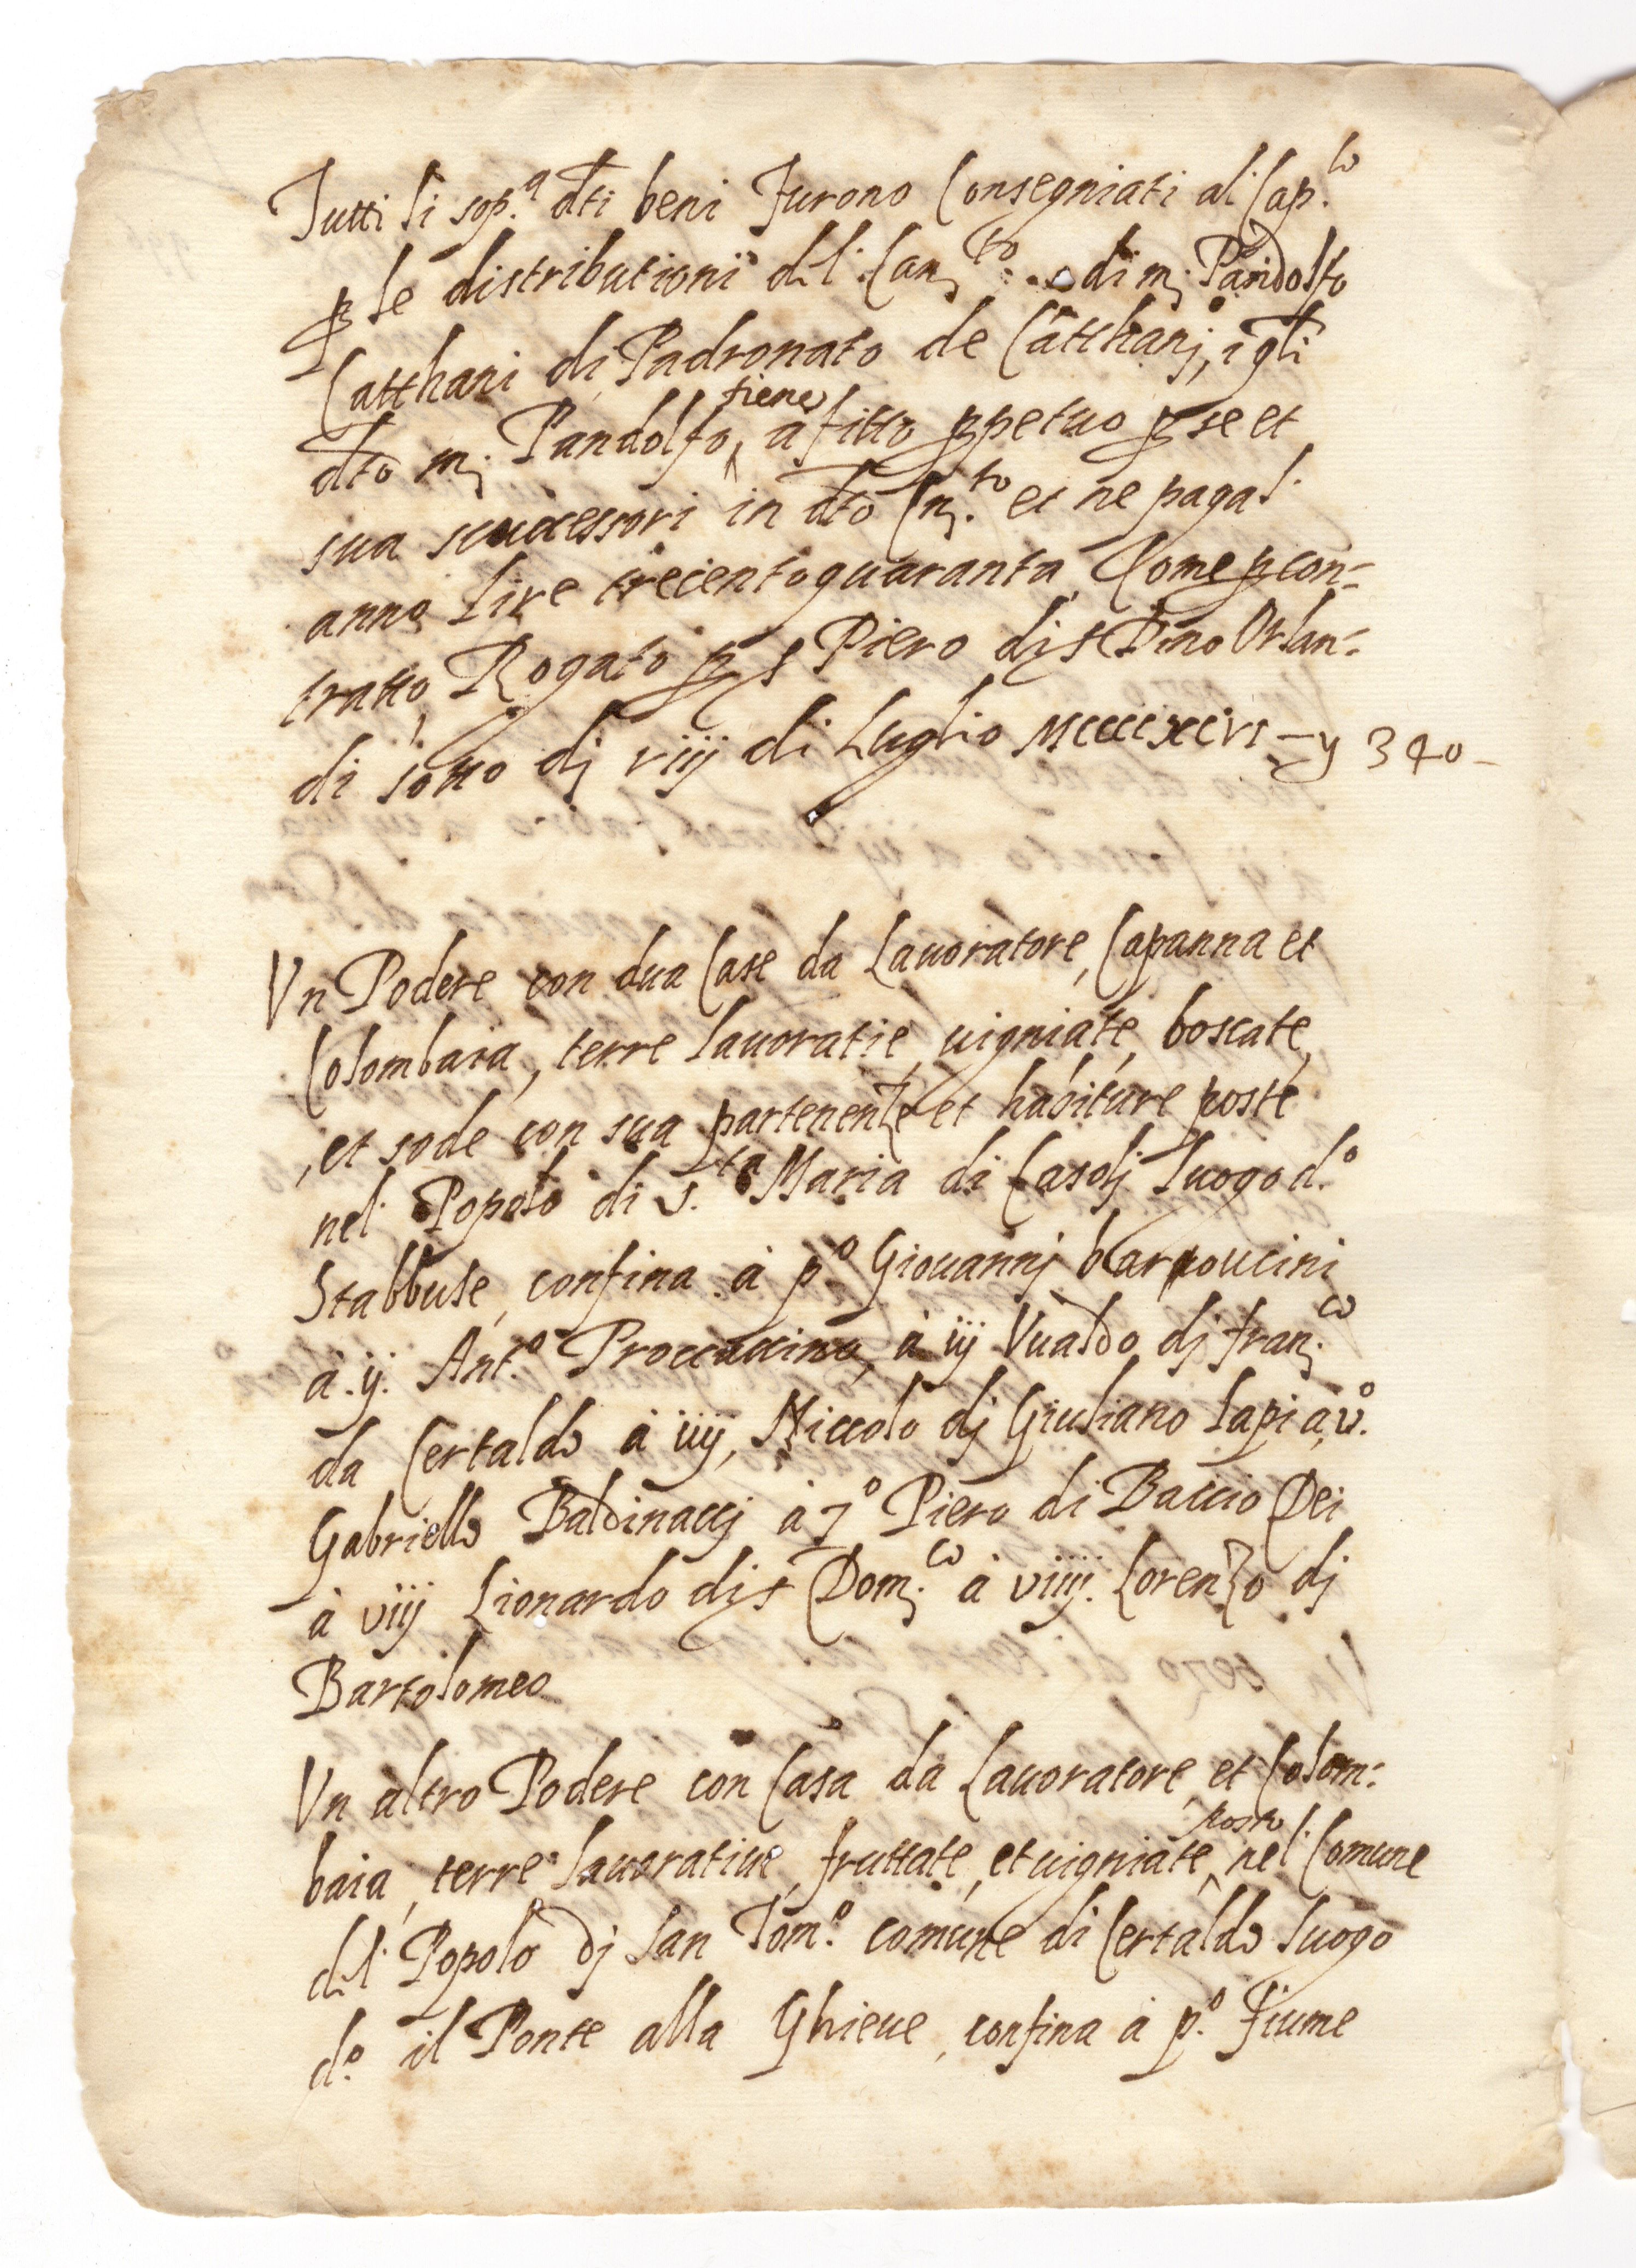 Tutti li sop.a dti beni furono Consegniati al Cap.lo
p le distributioni del Can.to di m. Pandolfo
Catthani di Padronato de Catthanj, i qli
dto m. Pandolfo tiene a fitto ppetuo p se et
sua successori in dto Cn.to et ne paga l
anno lire trecentoquaranta Come p con=
tratto Rogato p s Piero dj s Dino Orlan=
di sotto dj viij di Luglio Mccccxcvi - y 340 -
Vn Podere con dua Case da Lauoratore, Capanna et
Colombaia, terre lauoratie, uigniate, boscate,
et sode con sua partenenze et habiture poste
nel Popolo di S.ta Maria di Casolj luogo d.o
Stabbuse, confina à p.o Giouannj
à .ij. Ant.o Proccaccino, à iij Vualdo dj fran.co
da Certaldo à iiij, Niccolo dj Giuliano Lapi a, v.o
Gabriello Baldinaccj à 7o Piero di Baccio Dei
à viij Lionardo dj s Dom.co à viiij. Lorenzo dj
Bartolomeo
Vn altro Podere con Casa da Lauoratore, et Colom=
baia, terre lauoratiue, fruttate, et uigniate posto nel Comune
del Popolo dj San Tom.o comune di Certaldo luogo
d.o il Ponte alla Ghieue, confina à p.o fiume